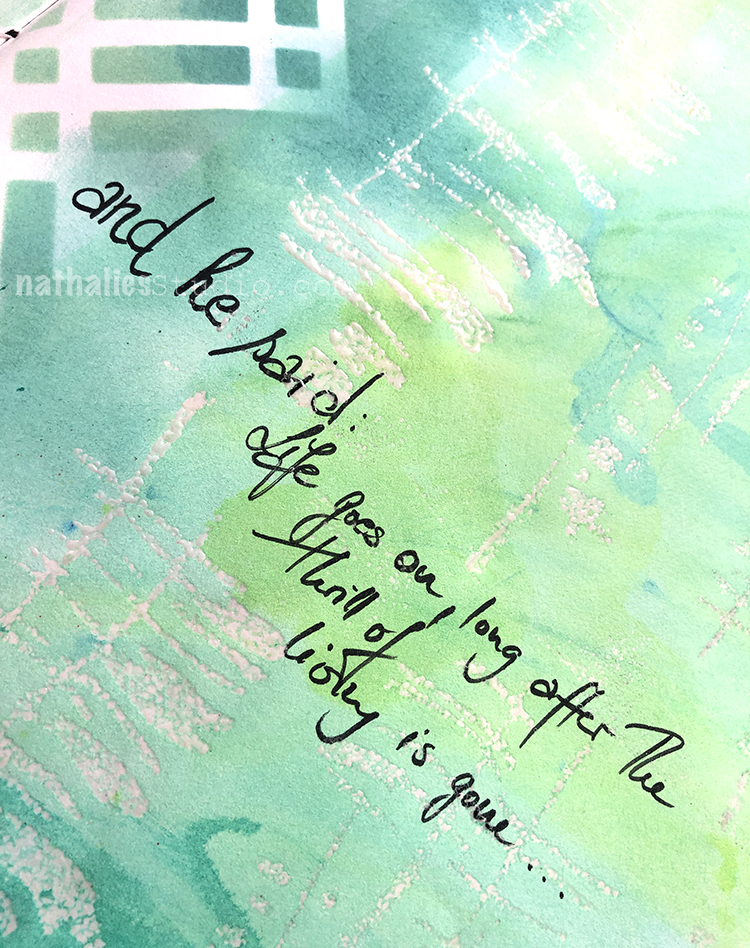 and he said:
Life goes on long after The
thrill of
is gone ...
nathaliesstudio.com